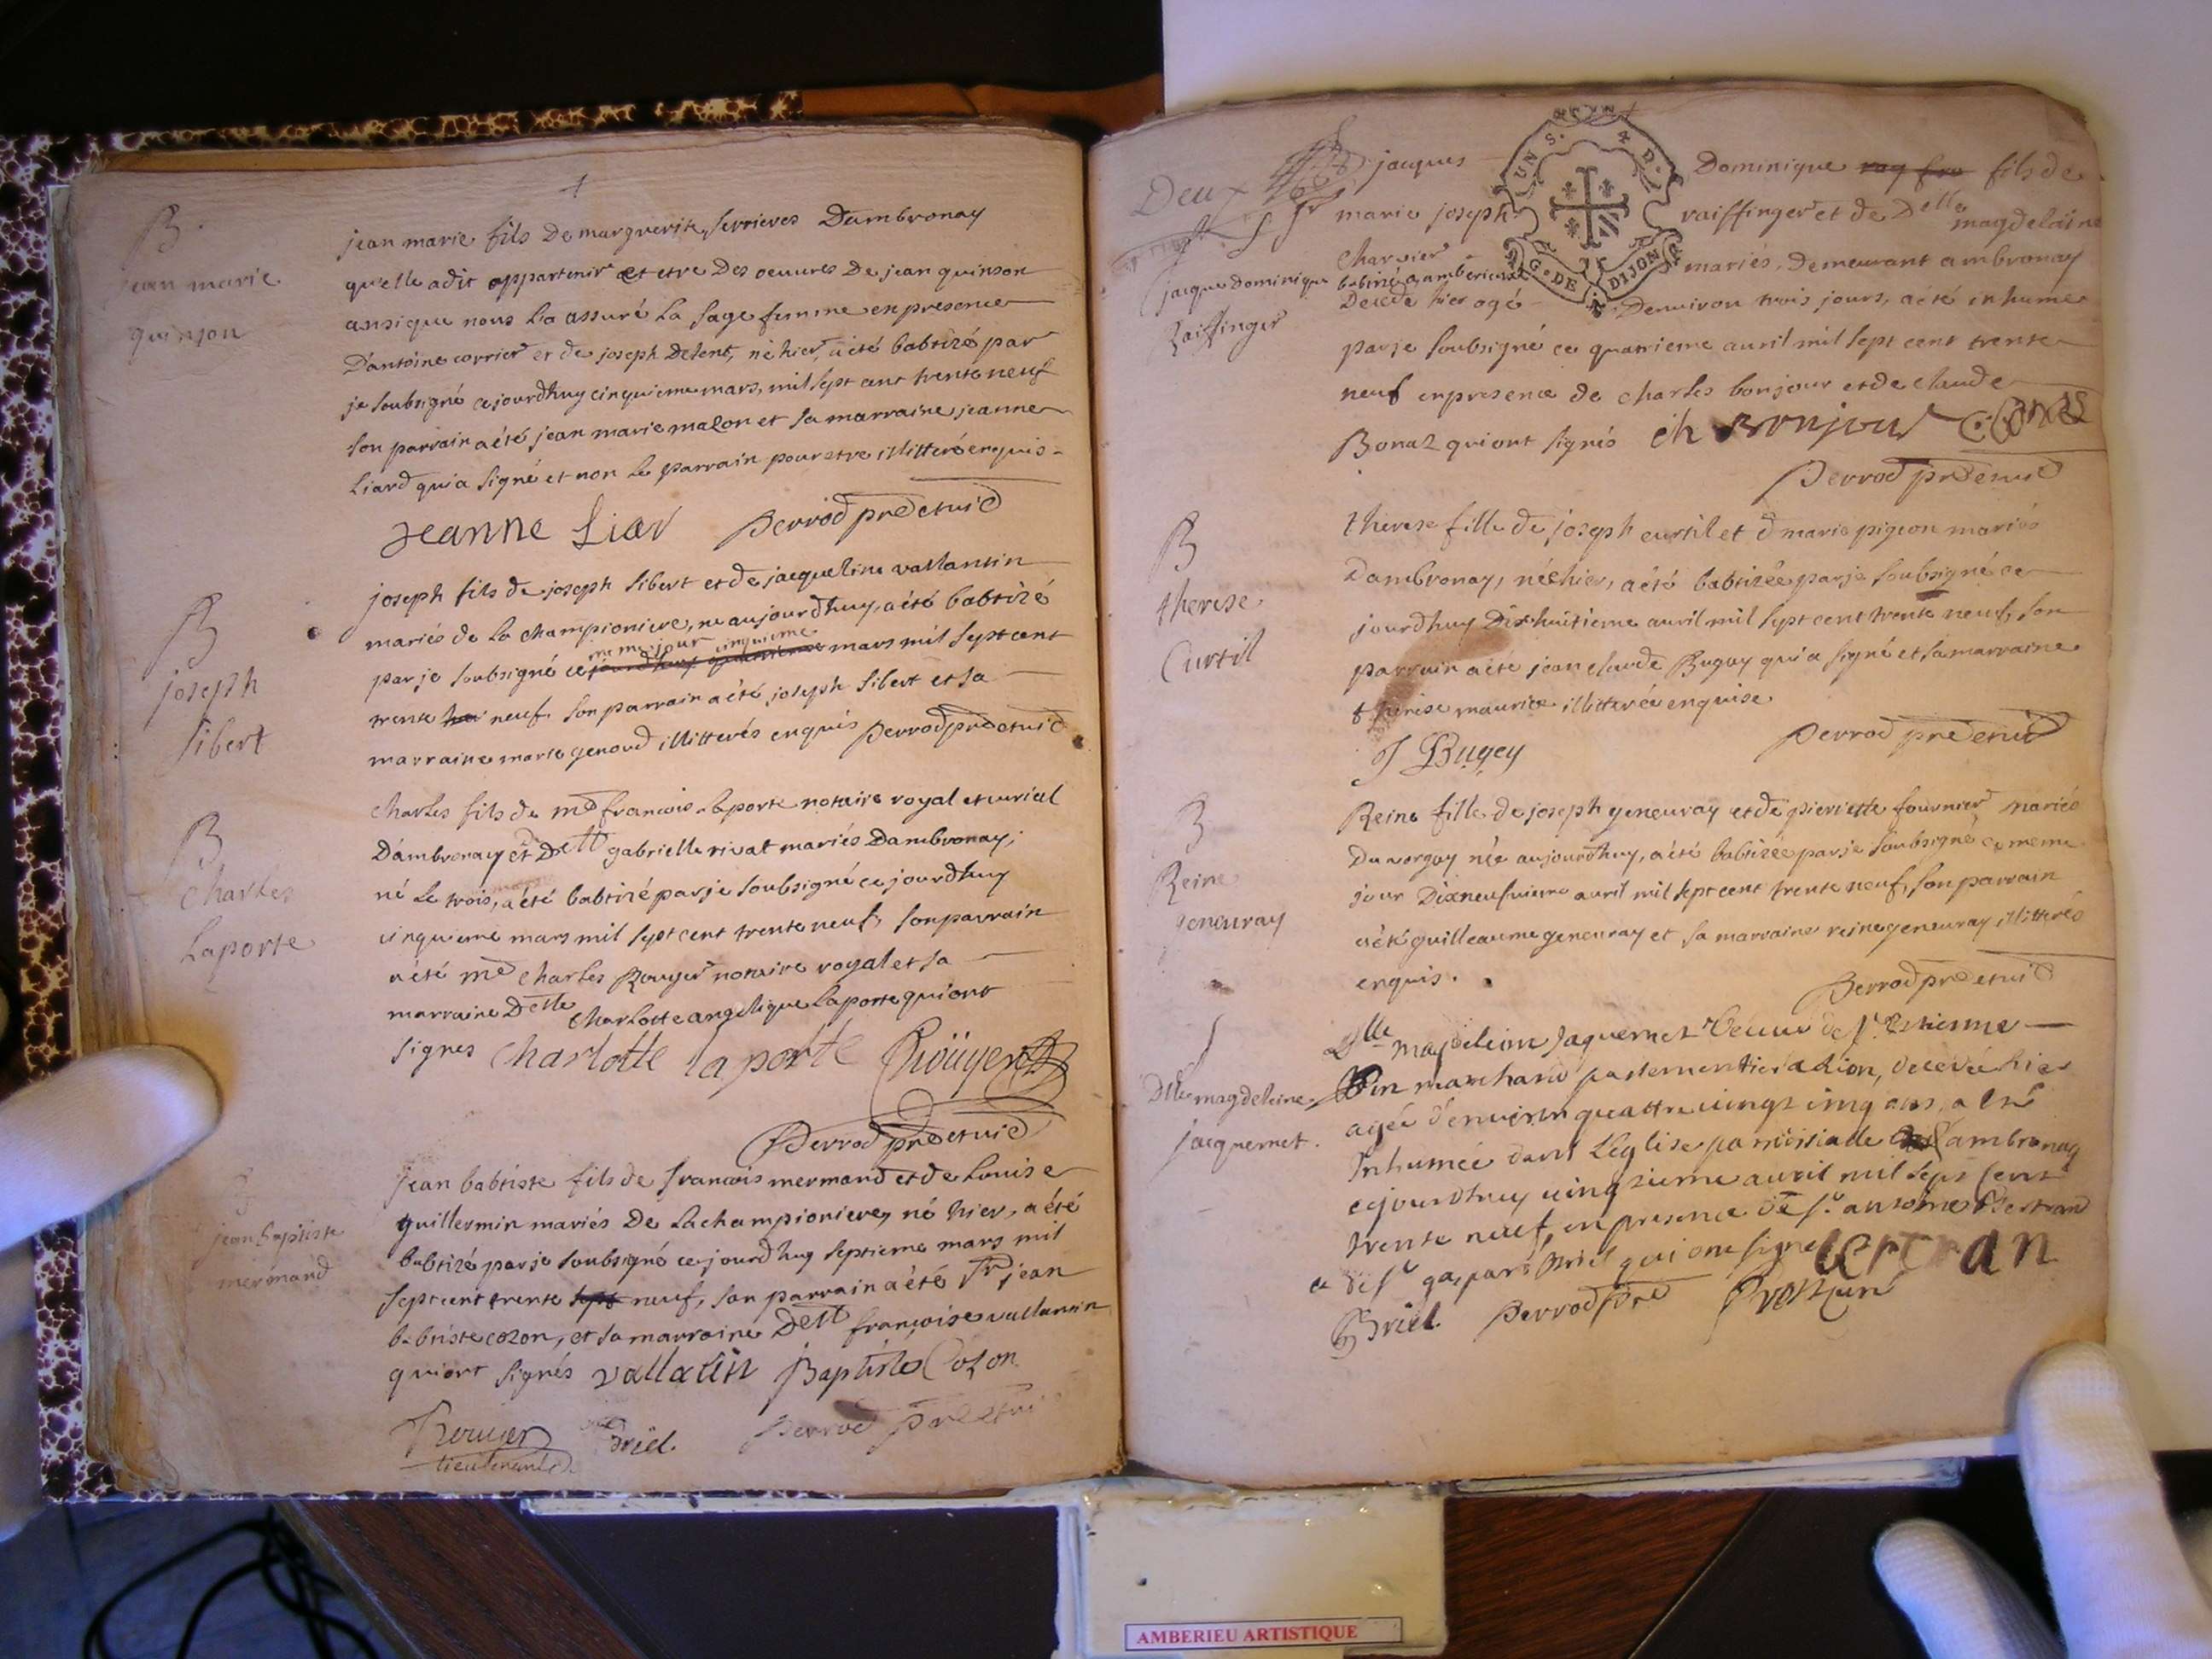 B
jean marie
quinson
jean marie fils De marguerite serrieres Dambronay
qu'elle adit appartenir et etre Des oeuvres De jean quinson
ansique nous l'a assuré La sage femme en presence
D'antoine corrier et de joseph Delent, né hier, a été babtizé par
je soubsigné cejourdhuy cinquieme mars, mil sept cent trente neuf
son parrain a été jean marie malon et sa marraine jeanne
Liard qui a signé et non Le parrain pour etre illitteré enquis
jeanne Liar Perrod pre et vic
B
joseph
sibert
joseph fils de joseph sibert et de jacqueline vallantin
mariés de la championiere, né aujourdhuy, a été babtizé
meme jour cinquieme
par je soubsigné ce mars mil sept cent
trente neuf son parrain a été joseph sibert et sa
marraine marte genoud illitterés enquis Perrod pre et vic
B
Charles
Laporte
Charles fils de me francois Laporte notaire royal et curial
Dambronay et Delle gabrielle rivat mariés Dambronay,
né Le trois, a été babtizé par je soubsigné ce jourdhuy
cinquieme mars mil sept cent trente neuf, son parrain
a été me charles Rouyer notaire royal et sa
marraine Delle Charlotte angelique Laporte qui ont
signes Charlotte la porte Roüyer
Perrod pre et vic
B
jean baptiste
mermand
jean babtiste fils de francois mermand et de Louise
guillermin mariés De Lachampioniere, né hier, a été
babtizé par je soubsigné cejourdhuy septieme mars mil
sept cent trente neuf, son parrain a été sr jean
babtiste cozon, et sa marraine Delle françoise vallantin
qui ont signés vallatin Baptiste Cozon
Rouyer Briel Perrod
lieutenant
Deux
S
jacque Dominique
Raiffinger
UN S. 4 D.
G. DE DIJON
jacques Dominique fils de
sr marie joseph raiffinger et de Delle magdelaine
Charvier mariés, Demeurant ambronay
babtizé a amberieux
Decedé hier agé Denviron trois jours, a été inhumé
par je soubsigné ce quatrieme avril mil sept cent trente
neuf en presence de charles bonjour et de claude
Bonaz qui ont signés Ch Bonjour C. Bonaz
Perrod pre et vic
B
therese
Curtil
therese fille de joseph curtil et d marie pigeon mariés
Dambronay, née hier, a été babtizée par je soubsigné ce
jourdhuy Dix huitieme avril mil sept cent trente neuf, son
parrain a été jean claude Bugay qui a signé et sa marraine
therese maurice illitterée enquise
J Bugey Perrod pre et vic
B
Reine
geneuray
Reine fille de joseph geneuray et de pierrette fournier mariés
Du vorgay née aujourdhuy, a été babtizée par je soubsigné ce meme
jour Dixneufvieme avril mil sept cent trente neuf, son parrain
a été guilleaume geneuray et sa marraine reine geneuray illitterés
enquis.
Perrod pre et vic
S
Dlle magdeleine
jacquemet.
Dlle magdeleine jaquemet veuve de sr Estienne
marchand a Lion, decedée hier
agée d'environ quattre vingt cinq ans, a esté
Inhumée dans L'eglise parroissialle d'ambronay
cejourdhuy vingtieme avril mil sept cent
trente neuf, en presence de sr antoine Bertrand
et de sr gaspard Briel qui ont signé Bertran
Briel Perrod pre
AMBERIEU ARTISTIQUE